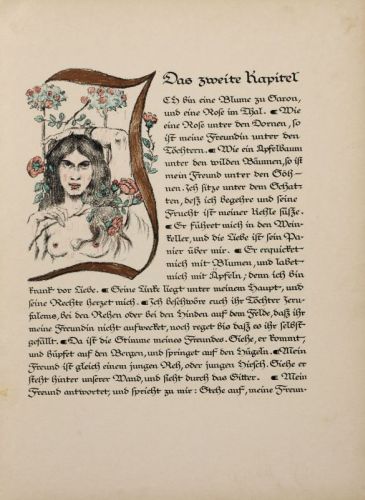 Das zweite Kapitel
ICH bin eine Blume zu Saron,
und eine Rose im Thal. Wie
eine Rose unter den Dornen, so
ist meine Freundin unter den
Töchtern. Wie ein Apfelbaum
unter den wilden Bäumen, so ist
mein Freund unter den Söh-
nen. Ich sitze unter dem Schat-
ten, deß ich begehre und seine
Frucht ist meiner Kehle süße.
Er führet mich in den Wein-
keller, und die Liebe ist sein Pa-
nier über mir. Er erquicket
mich mit Blumen, und labet
mich mit Äpfeln; denn ich bin
krank vor Liebe. Seine Linke liegt unter meinem Haupt, und
seine Rechte herzet mich. Ich beschwöre euch ihr Töchter Jeru-
salems, bei den Rehen oder bei den Hinden auf dem Felde, daß ihr
meine Freundin nicht aufwecket, noch reget bis daß es ihr selbst
gefällt. Da ist die Stimme meines Freundes. Siehe, er kommt,
und hüpfet auf den Bergen, und springet auf den Hügeln. Mein
Freund ist gleich einem jungen Reh, oder jungen Hirsch. Siehe er
steht hinter unserer Wand, und sieht durch das Gitter. Mein
Freund antwortet, und spricht zu mir: Stehe auf, meine Freun-